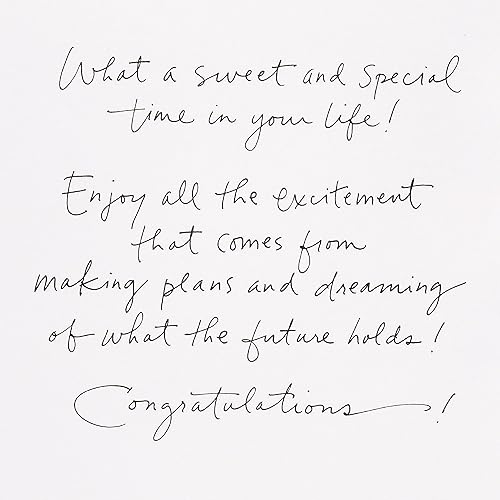 What a sweet and special
time in your life!
Enjoy all the excitement
that comes from
making plans and dreaming
of what the future holds!
Congratulations!